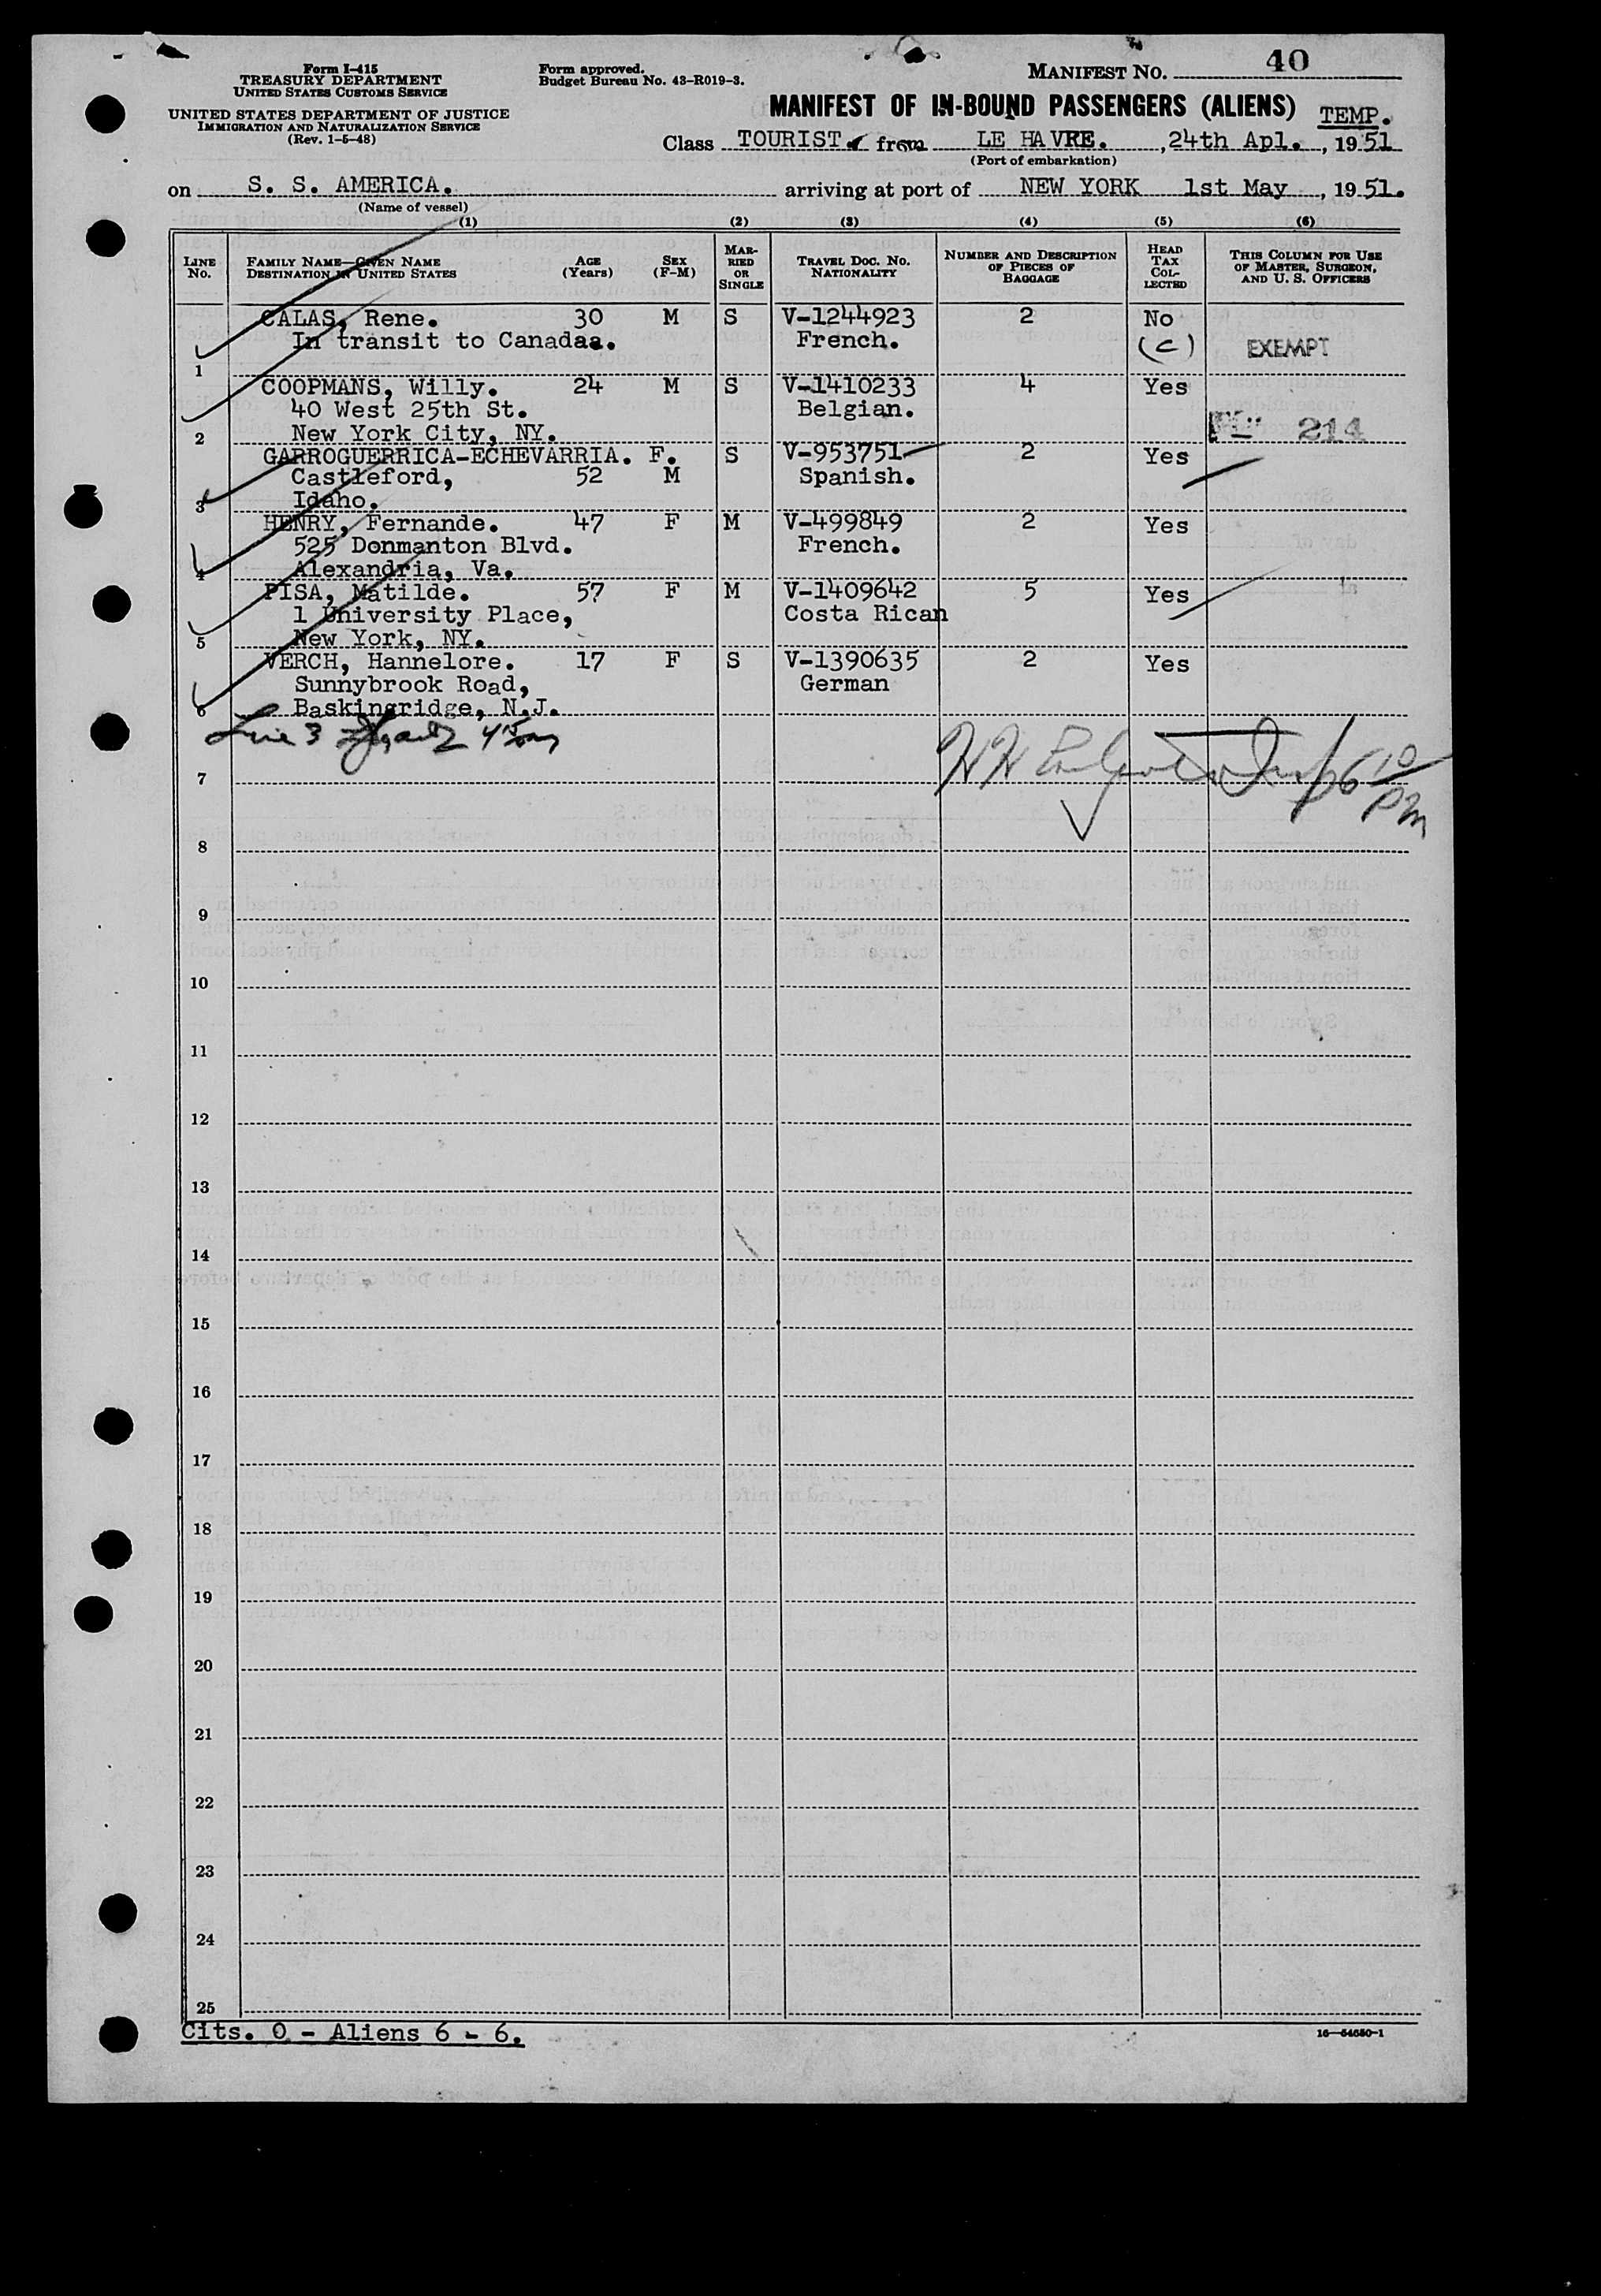 Form I-415
TREASURY DEPARTMENT
UNITED STATES CUSTOMS SERVICE
UNITED STATES DEPARTMENT OF JUSTICE
IMMIGRATION AND NATURALIZATION SERVICE
(Rev. 1-5-48)
Form approved.
Budget Bureau No. 43-R019-3.
MANIFEST NO. 40
MANIFEST OF IN-BOUND PASSENGERS (ALIENS) TEMP.
Class TOURIST. from LE HAVRE. , 24th Apl. , 1951
(Port of embarkation)
on S. S. AMERICA. arriving at port of NEW YORK 1st May , 1951.
(Name of vessel)
(1) (2) (3) (4) (5) (6)
LINE NO. FAMILY NAME—GIVEN NAME DESTINATION IN UNITED STATES AGE (Years) SEX (F-M) MARRIED OR SINGLE TRAVEL DOC. NO. NATIONALITY NUMBER AND DESCRIPTION OF PIECES OF BAGGAGE HEAD TAX COLLECTED THIS COLUMN FOR USE OF MASTER, SURGEON, AND U. S. OFFICERS
CALAS, Rene. 30 M S V-1244923 2 No
In transit to Canadaa. French. (c) EXEMPT
1
COOPMANS, Willy. 24 M S V-1410233 4 Yes
40 West 25th St. Belgian. 214
2 New York City, NY.
GARROGUERRICA-ECHEVARRIA. F. S V-953751 2 Yes
Castleford, 52 M Spanish.
3 Idaho.
HENRY, Fernande. 47 F M V-499849 2 Yes
525 Donmanton Blvd. French.
4 Alexandria, Va.
PISA, Matilde. 57 F M V-1409642 5 Yes
1 University Place, Costa Rican
5 New York, NY.
VERCH, Hannelore. 17 F S V-1390635 2 Yes
Sunnybrook Road, German
6 Baskingridge, N.J.
Line 3
6 10 PM
7
8
9
10
11
12
13
14
15
16
17
18
19
20
21
22
23
24
25
Cits. 0 - Aliens 6 - 6.
16—54650-1